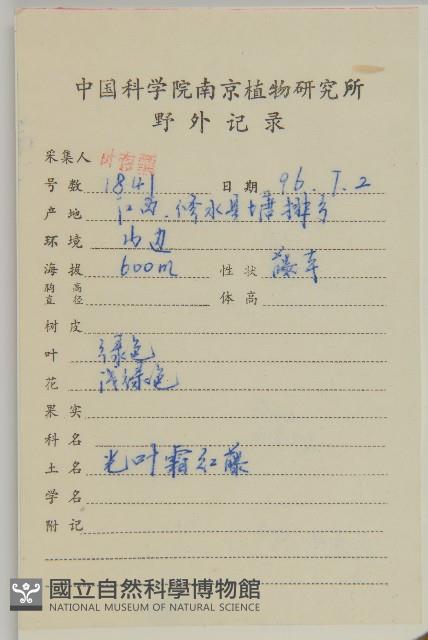 中国科学院南京植物研究所
野外记录
采集人 叶存粟
号数 1841 日期 96.7.2
产地 江西.修水县塘排乡
环境 山边
海拔 600m 性状 藤本
胸高直径 体高
树皮
叶 绿色
花 浅绿色
果实
科名
土名 光叶霜红藤
学名
附记
國立自然科學博物館
NATIONAL MUSEUM OF NATURAL SCIENCE